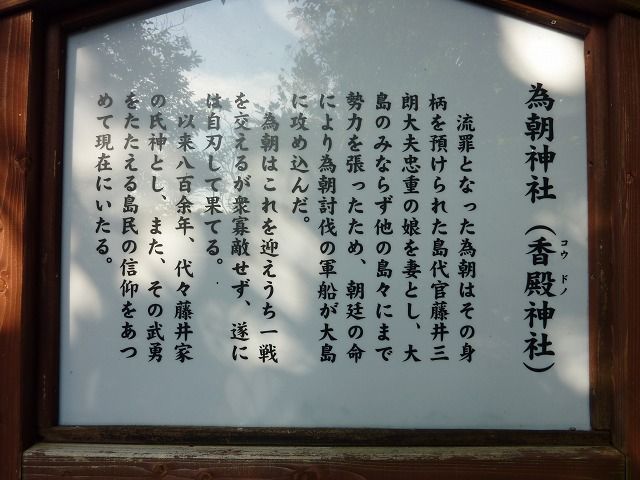 為朝神社（香殿神社）
コウ ドノ
流罪となった為朝はその身
柄を預けられた島代官藤井三
朗大夫忠重の娘を妻とし、大
島のみならず他の島々にまで
勢力を張ったため、朝廷の命
により為朝討伐の軍船が大島
に攻め込んだ。
為朝はこれを迎えうち一戦
を交えるが衆寡敵せず、遂に
は自刃して果てる。
以来八百余年、代々藤井家
の氏神とし、また、その武勇
をたたえる島民の信仰をあつ
めて現在にいたる。